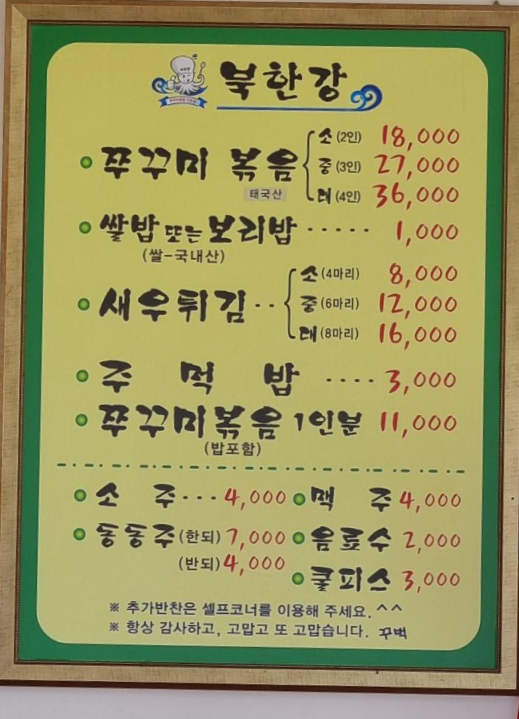 북한강
쭈꾸미 볶음 소(2인) 18,000
중(3인) 27,000
태국산 대(4인) 36,000
쌀밥 또는 보리밥 ····· 1,000
(쌀-국내산)
새우튀김 ·· 소(4마리) 8,000
중(6마리) 12,000
대(8마리) 16,000
주 먹 밥 ···· 3,000
쭈꾸미볶음 1인분 11,000
(밥포함)
소 주 ··· 4,000 맥 주 4,000
동동주(한되) 7,000 음료수 2,000
(반되) 4,000
쿨피스 3,000
※ 추가반찬은 셀프코너를 이용해 주세요. ^^
※ 항상 감사하고, 고맙고 또 고맙습니다. 꾸벅